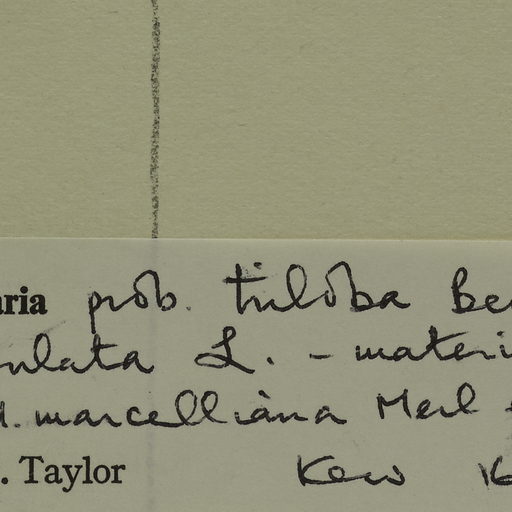 aria prob. triloba Be
ulata L. - materi
d. marcelliana Merl
. Taylor Kew 16